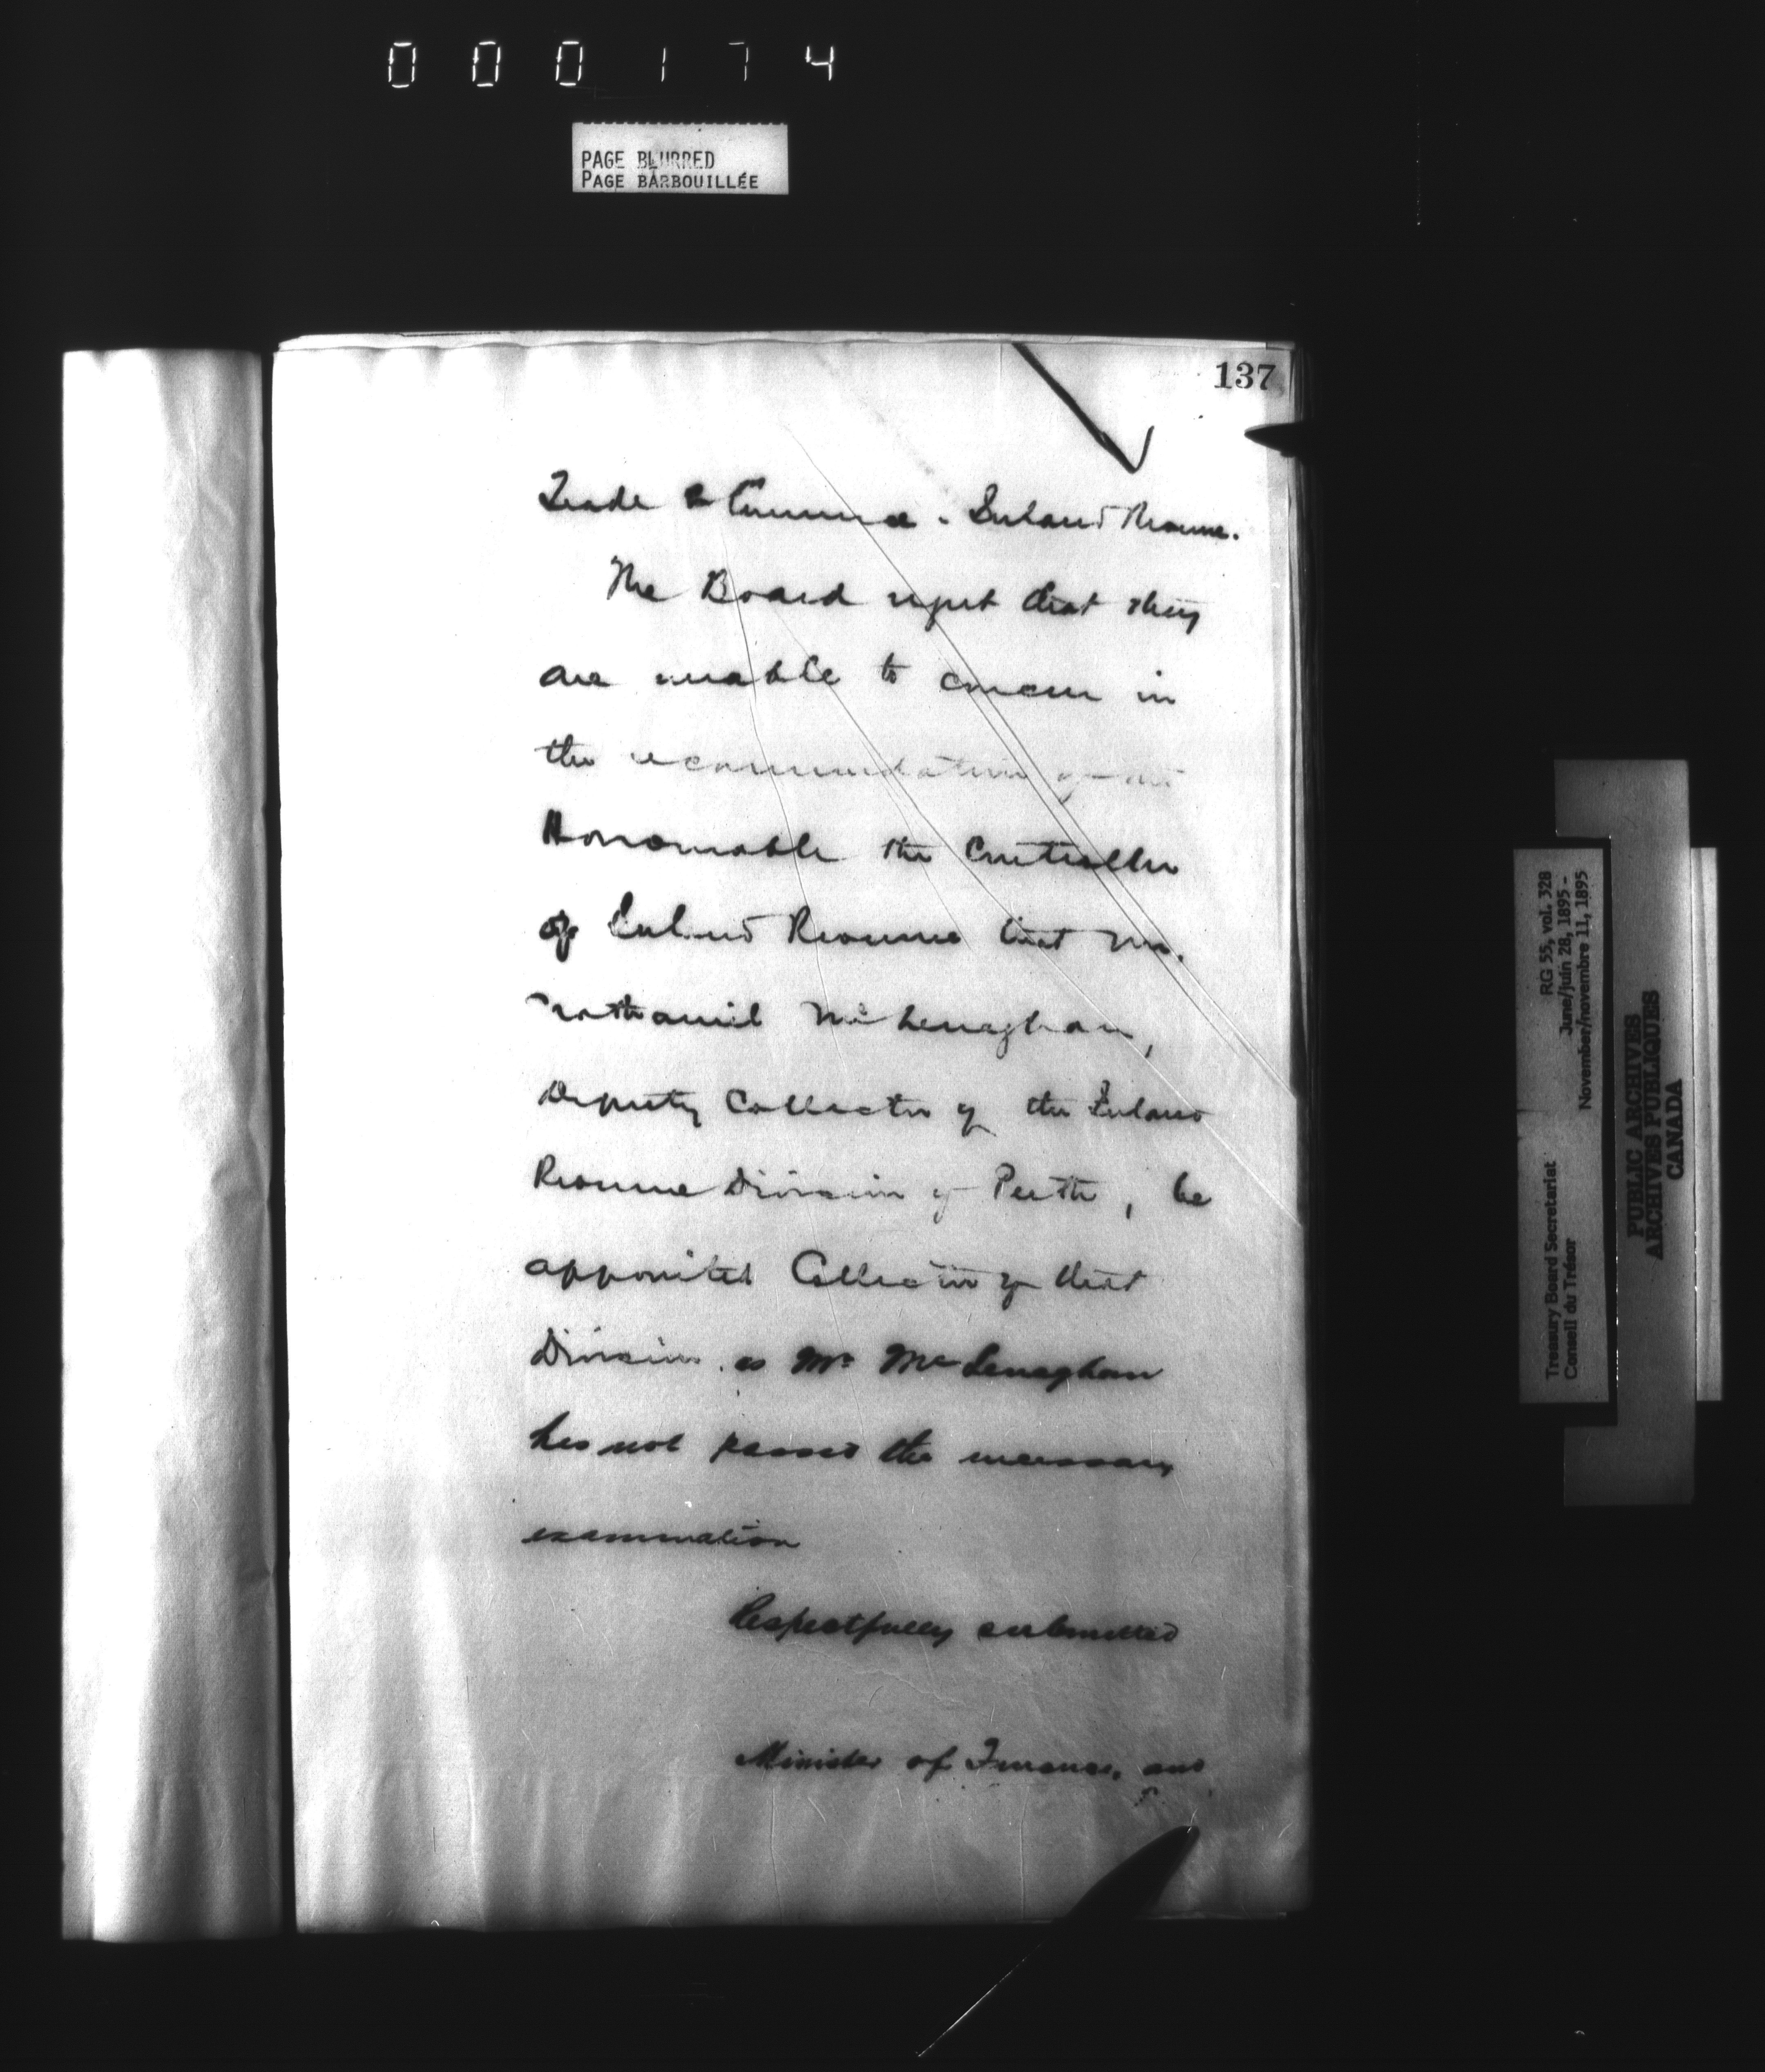 000174
PAGE BLURRED
PAGE BARBOUILLÉE
137
Trade & Commerce. Inland Revenue.
The Board report that they
are unable to concur in
the recommendation of the
Honourable the Controller
of Inland Revenue that Mr.
Nathaniel McLenaghan,
Deputy Collector of the Inland
Revenue Division of Perth, be
appointed Collector of that
Division as Mr McLenaghan
has not passed the necessary
examination
Respectfully submitted
Minister of Finance, and
Treasury Board Secretariat RG 55, vol. 328
Conseil du Trésor June/juin 28, 1895 -
November/novembre 11, 1895
PUBLIC ARCHIVES
ARCHIVES PUBLIQUES
CANADA